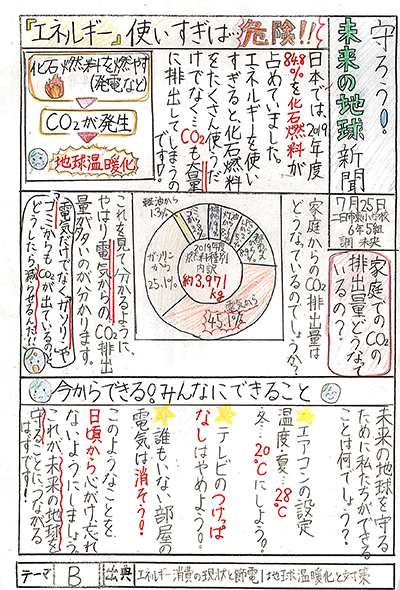 守ろう!
未来の地球新聞
7月25日
二日市東小学校
6年5組
調 未来
『エネルギー』使いすぎは…危険!!
化石燃料を燃やす
(発電など)
CO2が発生
地球温暖化
日本では、2019年度
84.8%を化石燃料が
占めていました。
エネルギーを使い
すぎると化石燃料
をたくさん使うだ
けでなく、CO2も大量
に排出してしまうの
です!!
家庭でのCO2の
排出量、どうなって
いるの?
家庭からのCO2排出量は
どうなっているのでしょうか?
2019年度
燃料種別
内訳
約3,971
kg
電気から
45.1%
ガソリン
から
25.1%
軽油から
これを見て分かるように、
やはり電気からのCO2排出
量が多いのが分かります。
電気だけでなく、ガソリンや
ゴミからもCO2が出ているのに、
どうしたら減らせるんだ!!
今からできる!みんなにできること
未来の地球を守る
ために私たちができる
ことは何でしょう?
エアコンの設定
温度、夏…28℃
冬…20℃にしよう。
テレビのつけっぱ
なしはやめよう。
誰もいない部屋の
電気は消そう!
このようなことを
日頃から心がけ忘れ
ないようにしましょう。
これが、未来の地球を
守ることにつながる
はずです!!
テーマ B 出典 エネルギー消費の現状と節電|地球温暖化と対策